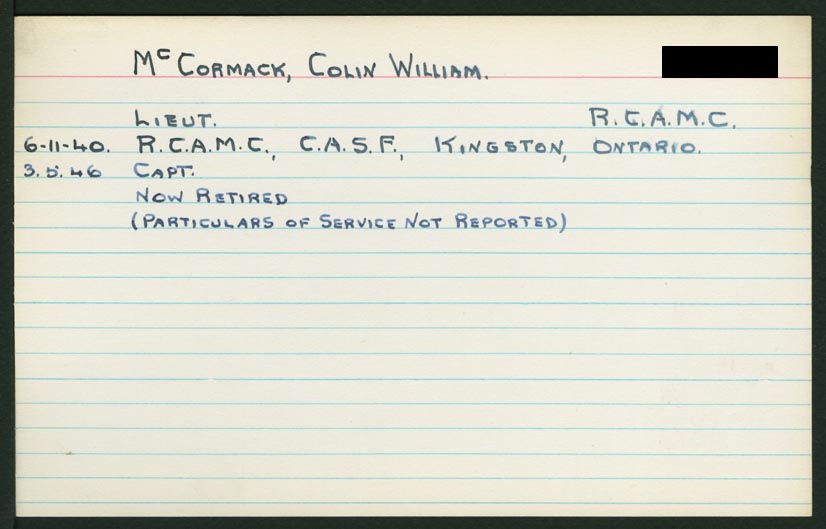 McCormack, Colin William.
Lieut. R.C.A.M.C.
6-11-40. R.C.A.M.C., C.A.S.F., Kingston, Ontario.
3.5.46 Capt.
Now Retired
(Particulars of Service Not Reported)